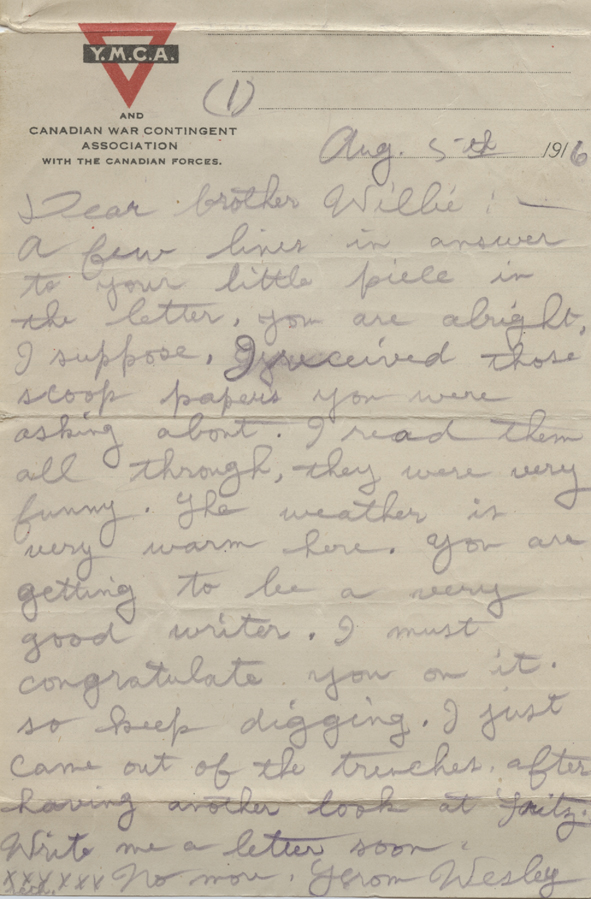 Y.M.C.A.
(1)
AND
CANADIAN WAR CONTINGENT
ASSOCIATION
WITH THE CANADIAN FORCES.
Aug. 5th 1916
Dear brother Willie: —
A few lines in answer
to your little piece in
the letter, you are alright,
I suppose. I received those
scoop papers you were
asking about. I read them
all through, they were very
funny. The weather is
very warm here. You are
getting to be a very
good writer. I must
congratulate you on it.
so keep digging. I just
came out of the trenches. after
having another look at Fritz.
Write me a letter soon.
xxxxxx No more. From Wesley